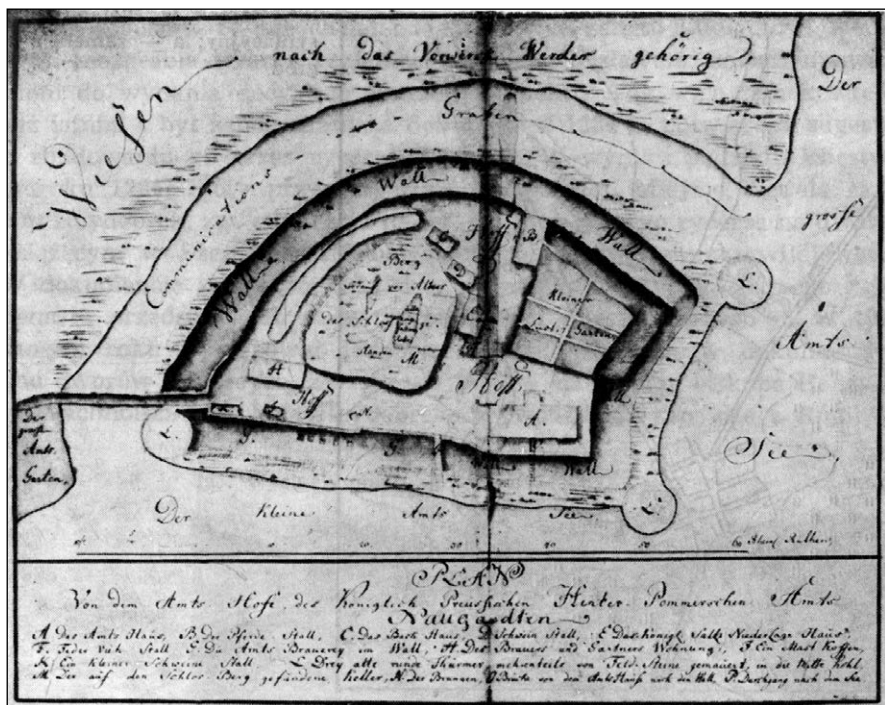 nach das Vorwerck Werder gehörig
Wiesen
Der
grosse
Amts
See
Communications
Graben
Wall
Wall
Wall
Hoff
B
L.
Kleiner
Lust Garten
Berg
M.
H
Hoff
Hoff
A.
N.
G.
G.
Wall
Wall
L.
L.
Der
grosse
Amts
Garten
Der Kleine Amts See
10 20 30 40 50
PLAN
Von dem Amts Hofe, des Königlich Preussischen Hinter Pommerschen Amts
Naugardten
A Das Amts Haus, B. Der Pferde Stall, C. Das Back Haus, D. Schwein Stall, E Das Königl. Saltz Niederlage Haus,
F. Feder Vieh Stall G. Die Amts Brauerey im Wall, H. Des Brauers und Gärtners Wohnung, J. Ein Mast Koffen,
K. Ein Kleiner Schweine Stall L. Drey alte runde Thürme, mehrenteils von Feld Steine gemauert, in die Mitte hohl
M. Der auf den Schlos Berg gefundene Keller, N. Der Brunnen, O. Brücke von dem Amts Hause nach den P. Durchgang nach den See